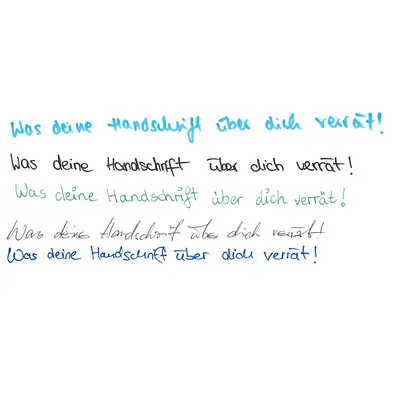 Was deine Handschrift über dich verrät!
Was deine Handschrift über dich verrät!
Was deine Handschrift über dich verrät!
Was deine Handschrift über dich verrät!
Was deine Handschrift über dich verrät!